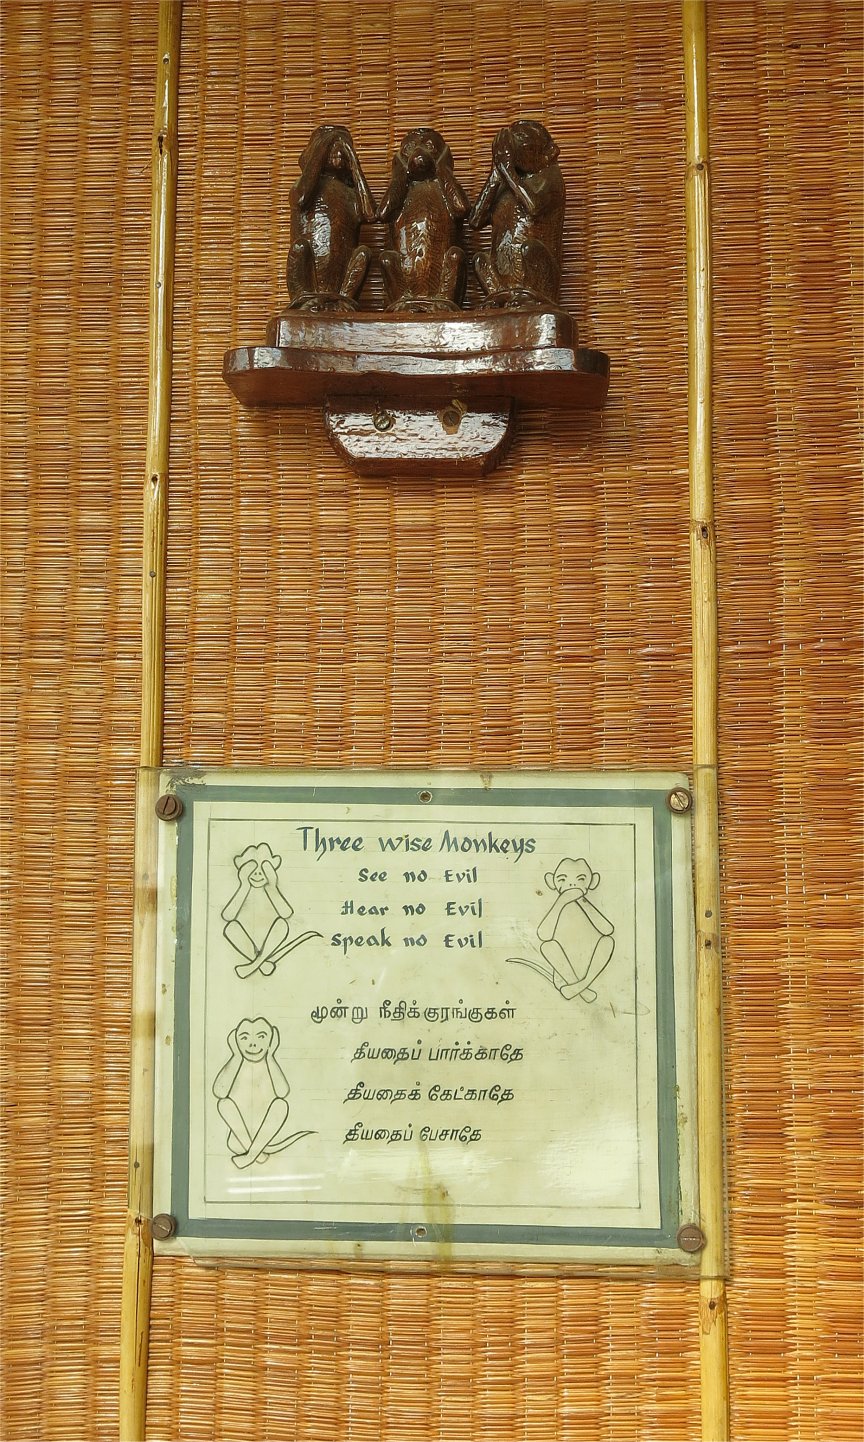 Three wise Monkeys
See no Evil
Hear no Evil
Speak no Evil
மூன்று நீதிக்குரங்குகள்
தீயதைப் பார்க்காதே
தீயதைக் கேட்காதே
தீயதைப் பேசாதே